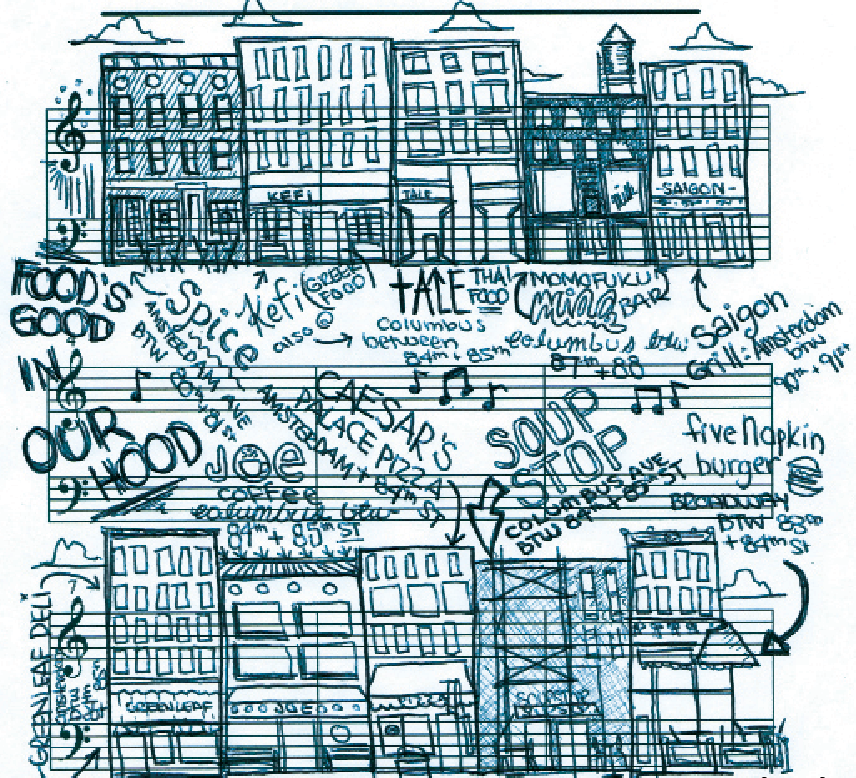 KEFI
TALE
Milk
-SAIGON-
FOOD'S
GOOD
IN
OUR
HOOD
Spice
AMSTERDAM AVE
BTW
80th + 81st
Kefi (GREEK
FOOD)
also @
tALE THAI
FOOD
Columbus
between
84th + 85th
MOMOFUKU
milk BAR
columbus btw
87th + 88
Saigon
Grill: Amsterdam
btw
90th + 91st
JOE
COFFEE
columbus btw
84th + 85th ST
CAESAR'S
PALACE PIZZA
AMSTERDAM + 84th ST
SOUP
STOP
COLUMBUS AVE
BTW 84th + 85th ST
five Napkin
burger
BROADWAY
BTW 83rd
+ 84th St
GREENLEAF DELI
amsterdam
btw
84th
85th
St
GREENLEAF
JOE
SOUPSTOP